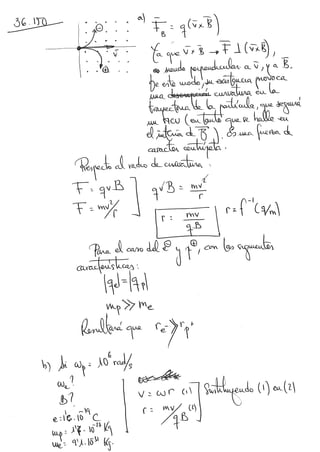 36.150
a) F_B = q(v̄ x B̄)
Ya que v̄ x B̄ → F̄ ⊥ (v̄xB̄),
siendo perpendicular a v̄, y a B̄.
De este modo, su existencia provoca
una curvatura en la
trayectoria de la partícula, que seguirá
un MCU (en tanto que se halle en
el interior de B̄). Es una fuerza de
carácter centrípeta.
⊖
v̄
⊕
Respecto al radio de curvatura:
F = qvB
F = mv²/r
qvB = mv²/r
r = mv/qB
r = f⁻¹(q/m)
Para el caso del e⁻ y p⊕, con las siguientes
características:
|qe| = |qp|
mp >> me
Resultará que re- >> rp+
b) Si ωp = 10⁶ rad/s
ωe?
B?
e = 1'6·10⁻¹⁹ C
me = 9'1·10⁻³¹ Kg.
v = ωr (1)
r = mv/qB (2)
Sustituyendo (1) en (2)